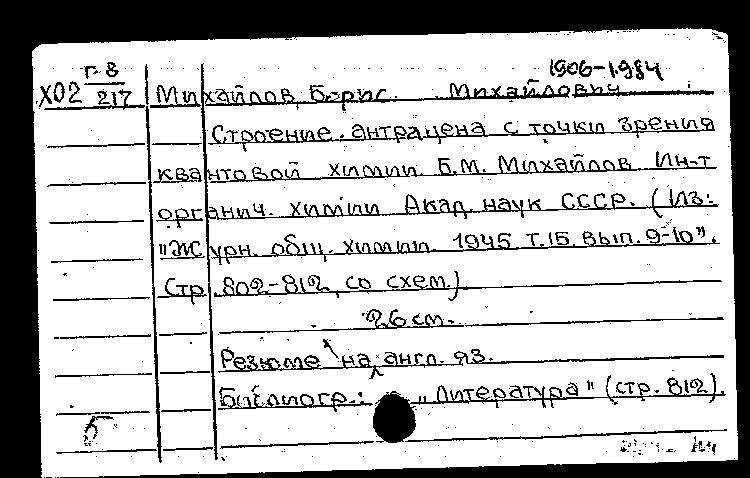 Г-8 1906-1984
Х02 217 Михайлов, Борис Михайлович
Строение антрацена с точки зрения
квантовой химии. Б.М. Михайлов. Ин-т
органич. химии Акад. наук СССР. (Из:
"Журн. общ. химии. 1945 т.15. вып. 9-10".
Стр. 802-812, со схем.)
26 см.
Резюме на англ. яз.
Библиогр.: "Литература" (стр. 812).
б